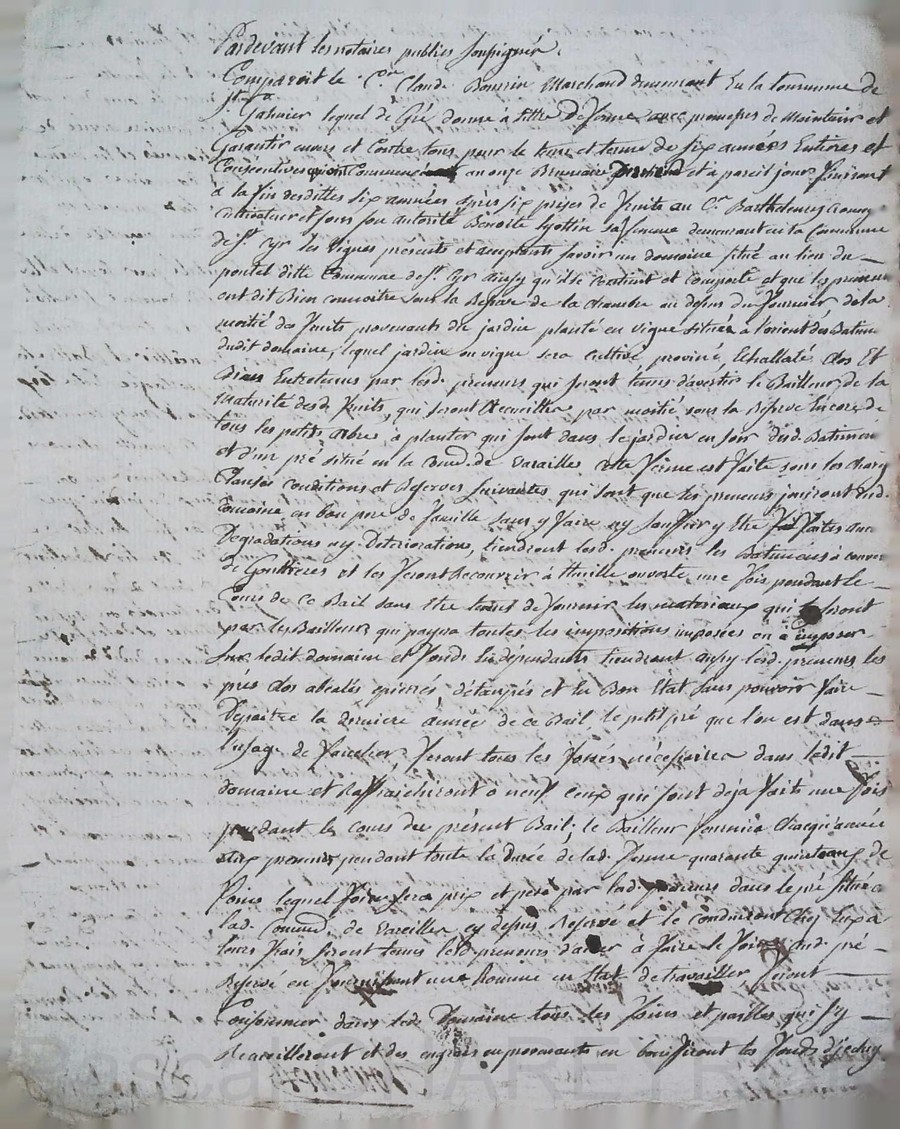 Pardevant les notaires publics soussignés.
Comparoit le C.en Claude Marchand demeurant En la Commune de
St. lequel de Gré donne à titre De ferme avec promesses de Maintenir et
Garantir envers et Contre tous pour le tems et terme de six années Entieres et
Consécutives qui ont Commencé au onze Brumaire et à pareil jour finiront
a la fin desdittes six années après six prises de fruits au C.en Barthelemy
cultivateur et sous son autorité Benoite sa femme demeurant en la Commune
de St. Cyr les Vignes présents et acceptants savoir un domaine situé au lieu du
pontel ditte Commune de St. Cyr ainsy qu'il se Contient et Comporte et que les preneurs
ont dit Bien connoitre sous la Reserve de la Chambre au dessus du fournier de la
moitié des fruits provenants du jardin planté en vigne située à l'orient des Batimens
dudit domaine, lequel jardin en vigne sera cultivé proviné Echallaté clos Et
Bien Entretenus par lesd. preneurs qui seront tenus d'avertir le Bailleur de la
maturité desd. fruits, qui seront Recueillis par moitié sous la Reserve Encore de
tous les petits arbres a planter qui sont dans le jardin en soir dud. Batiment
et d'un pré situé en la de Vareilles Cette ferme est faite sous les charges
Clauses conditions et Reserves suivantes qui sont que les preneurs jouiront dud.
Domaine en bon pere de famille sans y faire ny souffrir y Etre faites aucune
Degradations ny Deterioration, tiendront lesd. preneurs les Batimens à couvert
de Gouttieres et les feront Recouvrir à thuille ouverte une fois pendant le
Cours de Ce Bail sans Etre tenus de fournir les materiaux qui le seront
par les Bailleurs qui payera toutes les impositions imposées ou a imposer
sur ledit domaine et fonds En dépendants tiendront aussy lesd. preneurs les
prés clos étaupés et En Bon Etat sans pouvoir faire
Depaitre la derniere année de ce Bail le petit pré que l'on est dans
l'usage de faucher, feront tous les fossés nécessaires dans ledit
domaine et Raffraichiront à neuf Ceux qui sont déja faits une fois
pendant le cours du présent Bail; le Bailleur fournira chaque année
aux preneurs pendant toute la Durée de lad. ferme quarante quinteaux de
Foins lequel foin sera pris et pesé par lesd. preneurs dans le pré situé a
lad. Commune de Vareilles cy dessus Reservé et le conduiront Chez Eux a
leurs frais seront tenus lesd. preneurs d'aider a faire le foin dud. pré
Reservé en fournissant une homme en Etat de travailler feront
Consommer dans led. Domaine tous les foins et pailles qui s'y
Recueilleront et des engrais en provenants en bonifieront les fonds d'jceluy